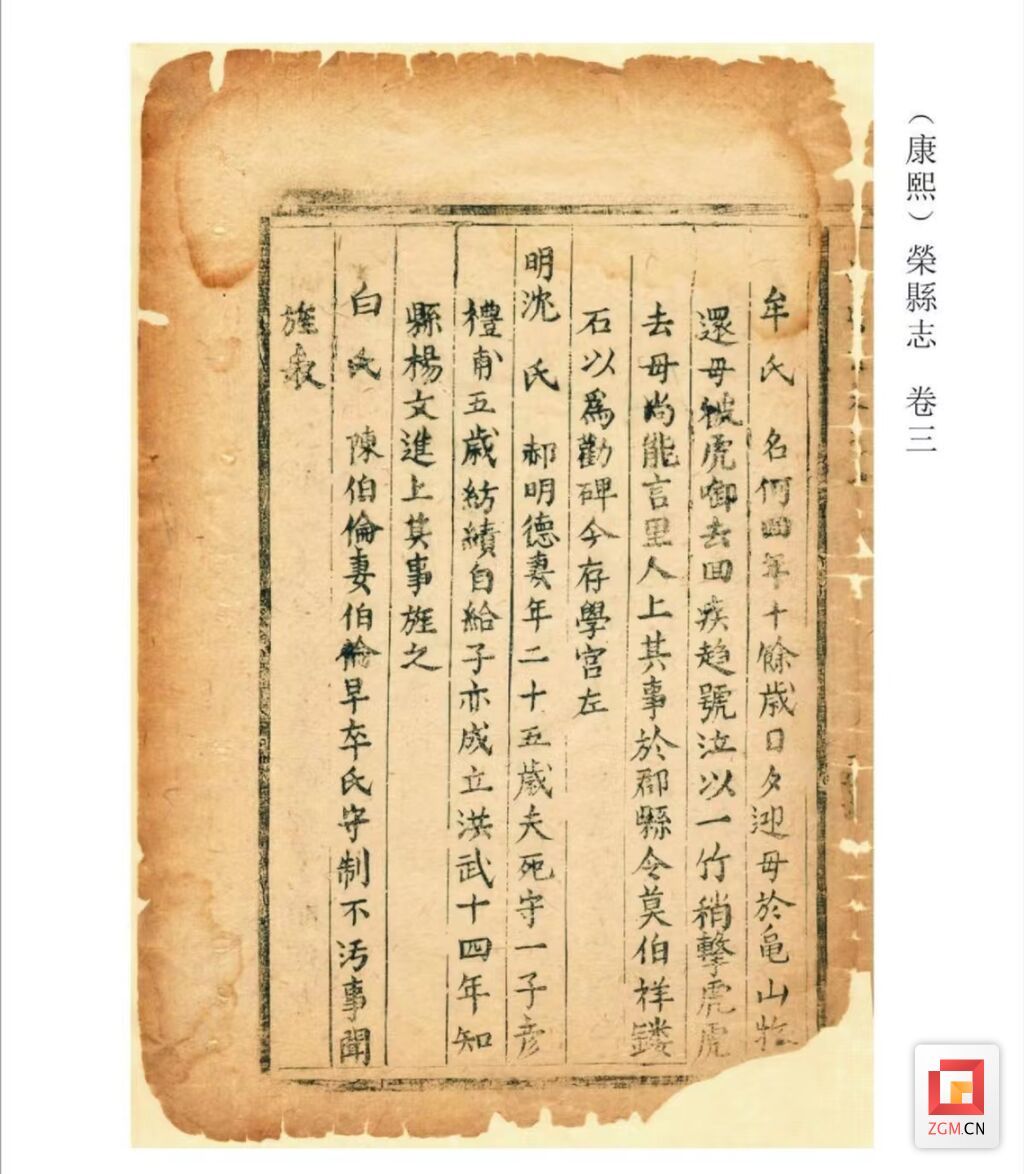 （康熙）榮縣志 卷三
牟氏 名何四年十餘歲日夕迎母於龜山牧
還母被虎啣去回疾趋號泣以一竹稍擊虎虎
去母尚能言里人上其事於郡縣令莫伯祥鏤
石以爲勸碑今存學宮左
明沈氏 郝明德妻年二十五歲夫死守一子彦
禮甫五歲紡績自給子亦成立洪武十四年知
縣楊文進上其事旌之
白氏 陳伯倫妻伯倫早卒氏守制不汚事聞
旌表
ZGM.CN